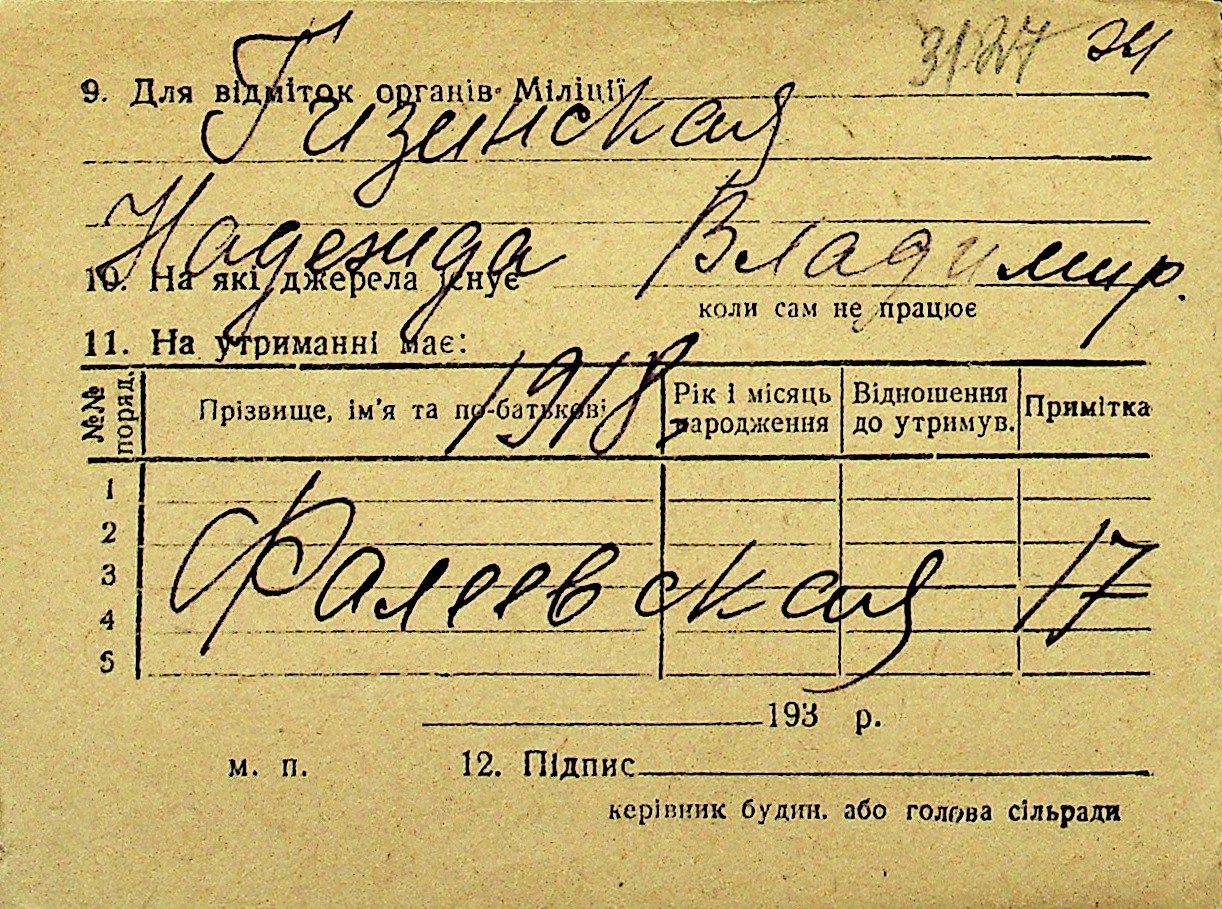 3127 24
9. Для відміток органів Міліції
Гизинская
Надежда Владимир.
10. На які джерела існує
коли сам не працює
11. На утриманні має:
1918
№№ поряд. Прізвище, ім'я та по-батькові Рік і місяць народження Відношення до утримув. Примітка
1
2
3
4
5
Фалеевская 17
193 р.
м. п. 12. Підпис
керівник будин. або голова сільради